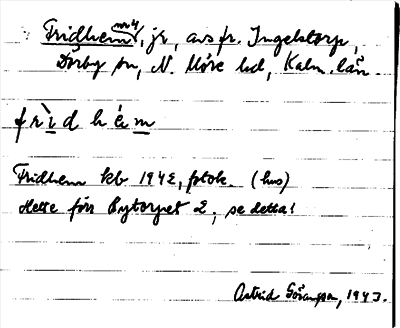 Fridhem nr 4, jr, avs fr. Ingelstorp,
Dörby sn, N. Möre hd, Kalm. län.
frìd hém
Fridhem kb 1942, fotok. (hus)
Hette förr Bytorpet 2, se detta!
Astrid Göransson, 1943.